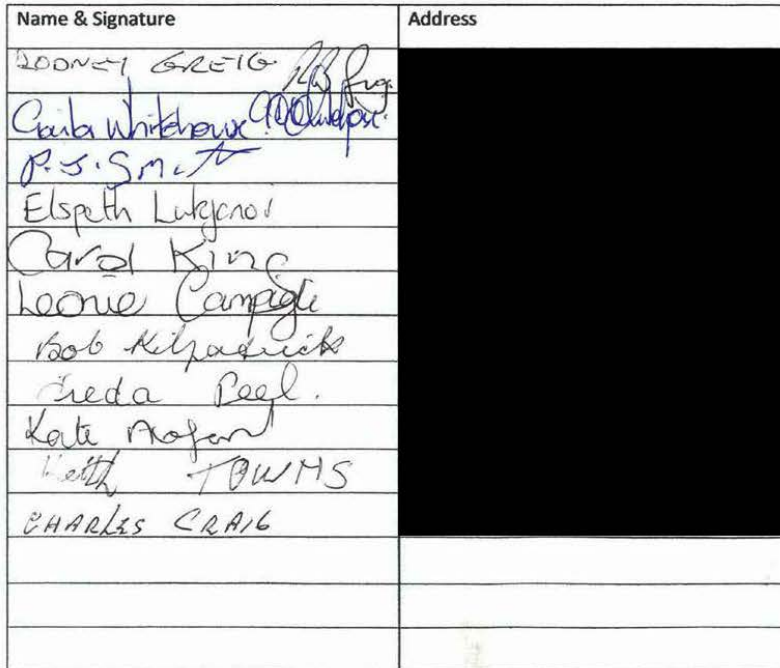 Name & Signature
Address
RODNEY GREIG
Whitehouse
P.J. Smith
Elspeth Lukjanov
Carol King
Leonie
Bob Kilpatrick
Freda Peel.
Kate
Keith TOWNS
CHARLES CRAIG